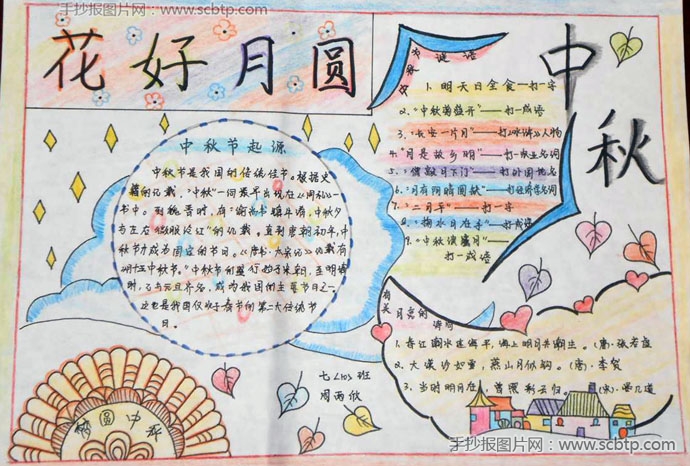 手抄报图片网：www.scbtp.com
花好月圆
中秋
中秋节起源
中秋节是我国的传统佳节。根据史
籍的记载，"中秋"一词最早出现在《周礼》一
书中。到魏晋时，有"谕尚书镇牛渚，中秋夕
与左右微服泛江"的记载。直到唐朝初年，中
秋节才成为固定的节日。《唐书·太宗记》记载有
中秋节。"中秋节的盛行始于宋朝，至明清
时，已与元旦齐名，成为我国的主要节日之一。
这也是我国仅次于春节的第二大传统节
日。
中秋节谜语
1、明天日全食——打一字
2、"中秋菊盛开"——打一成语
3、"长安一片月"——打《水浒》人物
4、"月是故乡明"——打一名词
5、"偶数月下门"——打外国地名
6、"月有阴晴圆缺"——打经济学名词
7、"二月平"——打一字
8、"掬水月在手"——打成语
9、"中秋赏月"——打一成语
有关月亮的诗词
1、春江潮水连海平，海上明月共潮生。（唐）张若虚
2、大漠沙如雪，燕山月似钩。（唐）李贺
3、当时明月在，曾照彩云归。（宋）晏几道
七<10>班
周雨欣
团圆中秋
手抄报图片网：www.scbtp.com